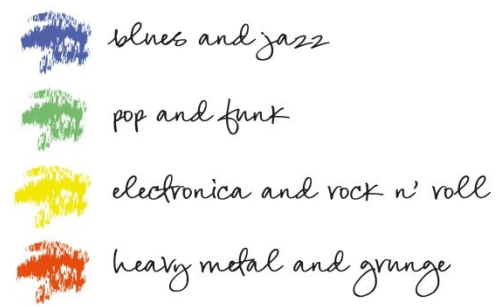 blues and jazz
pop and funk
electronica and rock n' roll
heavy metal and grunge